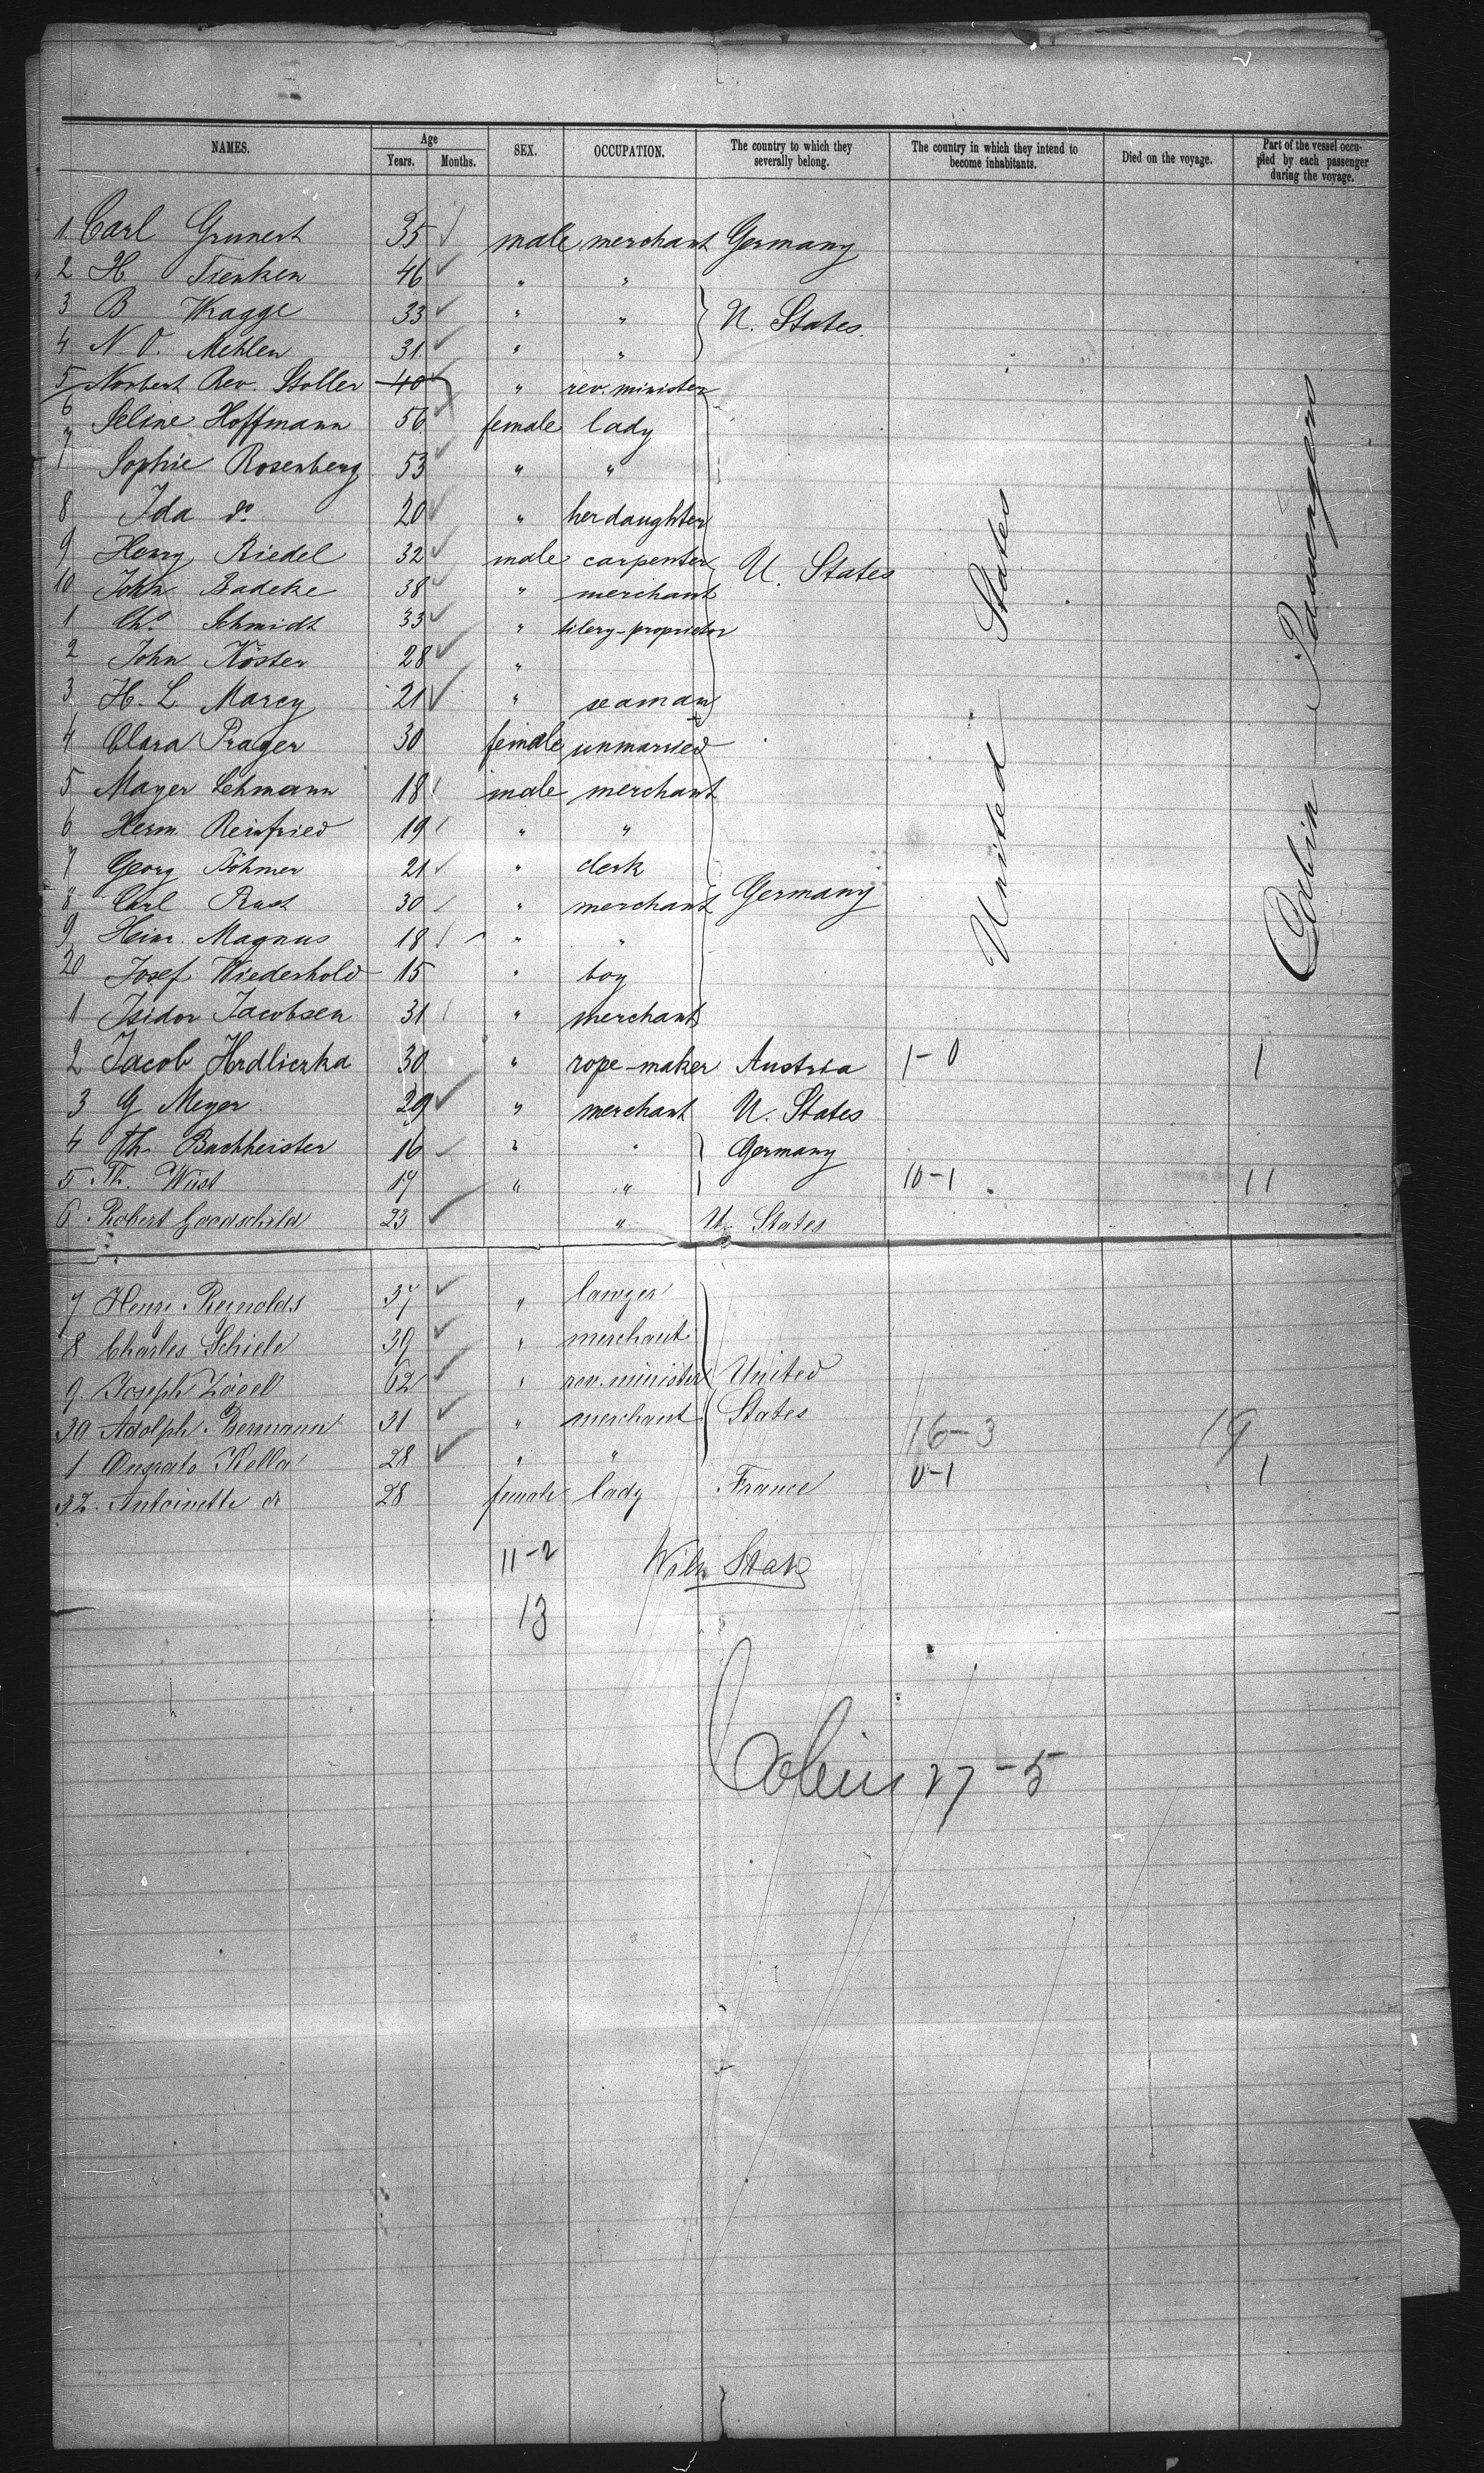 NAMES. Age Years. Months. SEX. OCCUPATION. The country to which they severally belong. The country in which they intend to become inhabitants. Died on the voyage. Part of the vessel occupied by each passenger during the voyage.
1. Carl Grunert 35 male merchant Germany
2 H Tienken 46 " "
3 B Wragge 33 " " U. States
4 N. O. Mehlen 31. " "
5 Norbert Rev. Stoller 40 " rev. minister
6 Seline Hoffmann 56 female lady
7 Sophie Rosenberg 53 " "
8 Ida do 20 " her daughter
9 Henry Riedel 32 male carpenter U. States
10 John Badeke 38 " merchant
1 Chs Schmidt 33 " tilery-proprietor
2 John Köster 28 "
3 H. L. Marcy 21 " seaman
4 Clara Prager 30 female unmarried
5 Mayer Lehmann 18 male merchant
6 Herm. Reinfried 19 " "
7 Georg Böhmer 21 " clerk
8 Carl Rust 30 " merchant Germany
9 Heinr. Magnus 18 " "
20 Josef Wiederhold 15 " boy
1 Isidor Jacobsen 31 " merchant
2 Jacob Hrdliczka 30 " rope-maker Austria 1-0 1
3 G Meyer 29 " merchant U. States
4 Th. Buchheister 16 " " Germany
5 Th. Wüst 17 " " 10-1 11
6 Robert Goodschild 23 " U. States
United States
Cabin Passengers
7 Henry Reynolds 37 " lawyer
8 Charles Schiele 39 " merchant
9. Joseph Zögel 62 " rev. minister United
30 Adolph Bermann 31 " merchant States 16-3 19
1 Kella 28 " "
32. Antoinette do 28 female lady France 0-1 1
11-2
13
Cabin 27-5